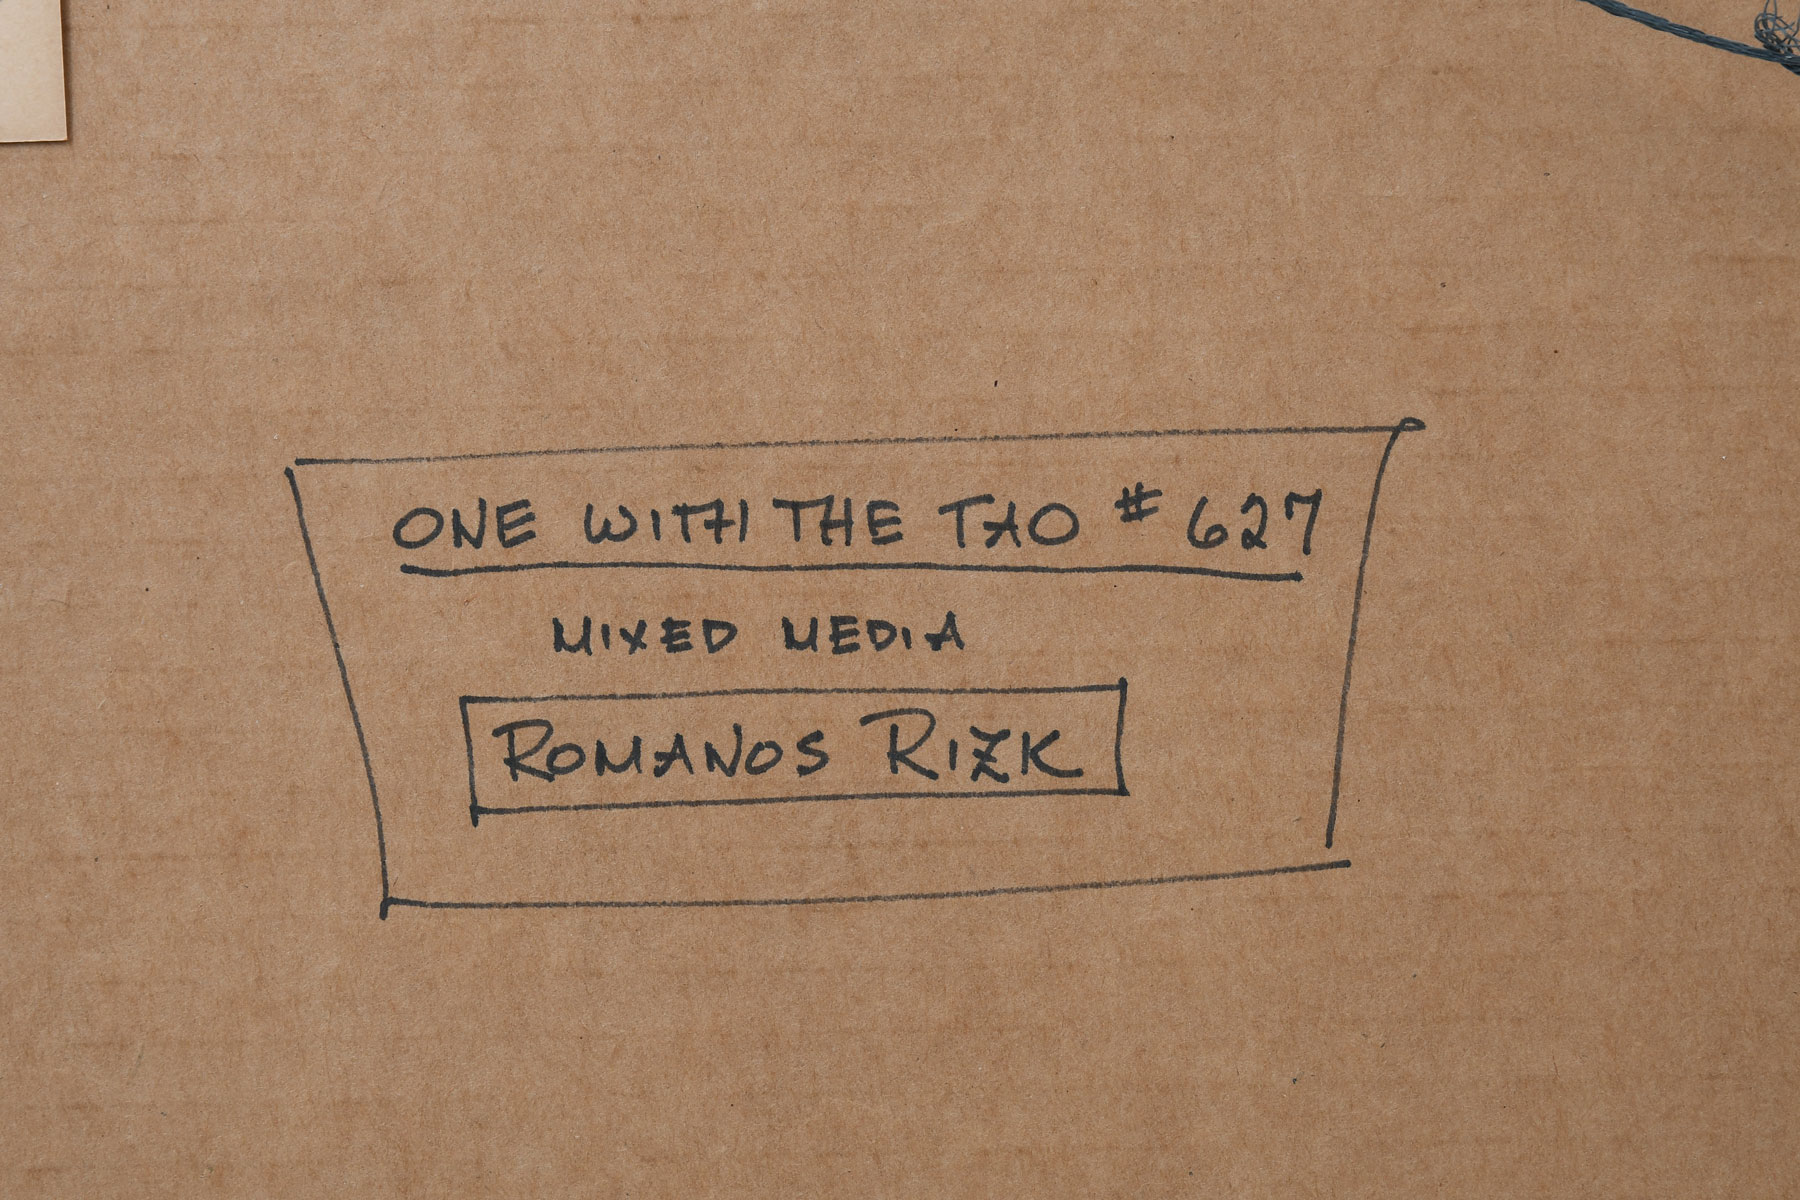 ONE WITH THE TAO # 627
MIXED MEDIA
ROMANOS RIZK